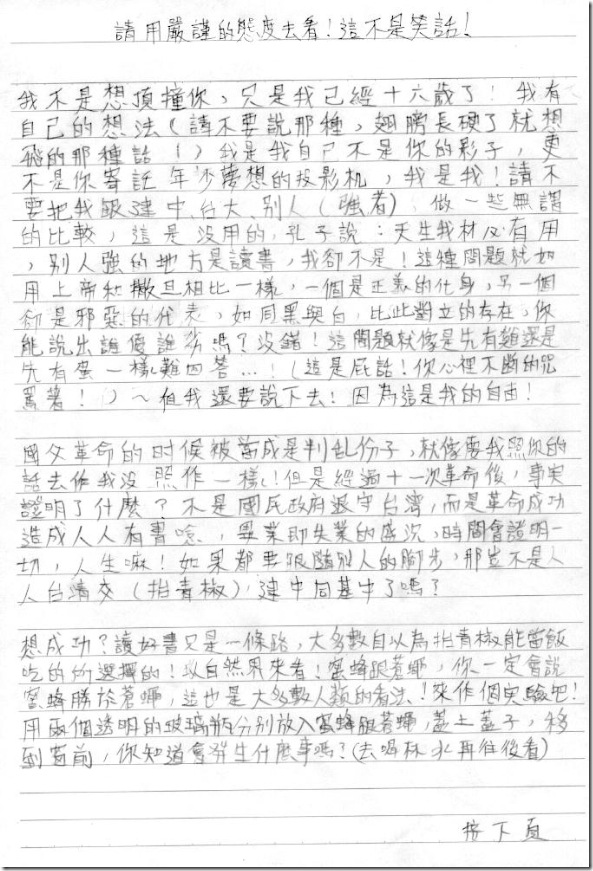 請用嚴謹的態度去看!這不是笑話!
我不是想頂撞你,只是我已經十六歲了!我有
自己的想法(請不要說那種,翅膀長硬了就想
飛的那種話!)我是我自己不是你的影子,更
不是你寄託年少夢想的投影机,我是我!請不
要把我跟建中、台大、別人(強者),做一些無謂
的比較,這是沒用的,孔子說:天生我材必有用
,別人強的地方是讀書,我卻不是!這種問題就如
用上帝和撒旦相比一樣,一個是正義的化身,另一個
卻是邪惡的代表,如同黑與白,比此對立的存在,你
能說出誰優誰劣嗎?沒錯!這問題就像是先有雞還是
先有蛋一樣難回答...!(這是屁話!你心裡不斷的咒
罵著!)~但我還要說下去!因為這是我的自由!
國父革命的时候被當成是判乱份子,就像要我照你的
話去作我沒照作一樣!但是經過十一次革命後,事实
證明了什麼?不是國民政府退守台灣,而是革命成功
造成人人有書唸,畢業即失業的盛況,時間會證明一
切,人生嘛!如果都要跟隨別人的腳步,那豈不是人
人台清交(抬青椒),建中同基中了嗎?
想成功?讀好書只是一條路,大多數自以為抬青椒能當飯
吃的所選擇的!以自然界來看!蜜蜂跟蒼蠅,你一定會說
蜜蜂勝於蒼蠅,這也是大多數人類的看法!來作個実驗吧!
用兩個透明的玻璃瓶分別放入蜜蜂跟蒼蠅,蓋上蓋子,移
到窗前,你知道會發生什麼事嗎?(去喝杯水再往後看)
接下頁